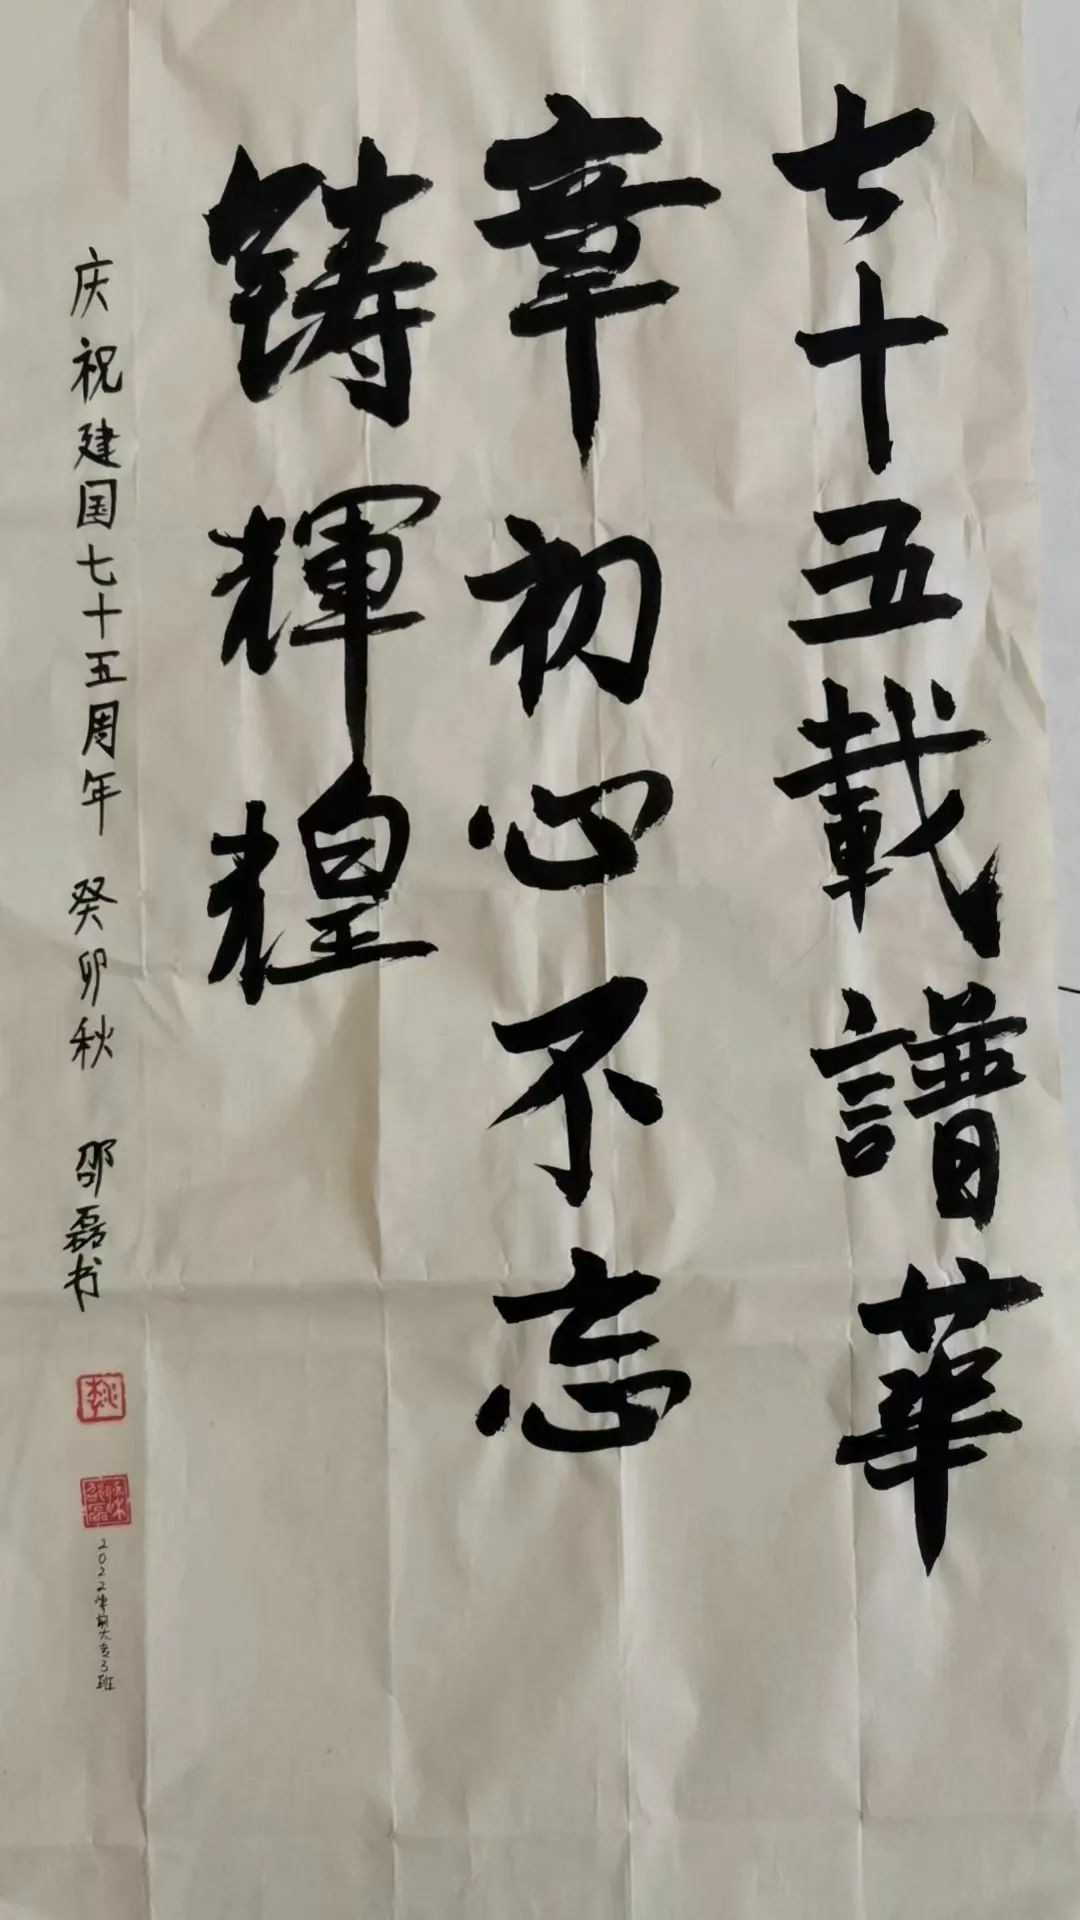 七十五載譜華
章初心不忘
铸輝煌
庆祝建国七十五周年 癸卯秋 邵磊书
邵磊
2022学期大专3班